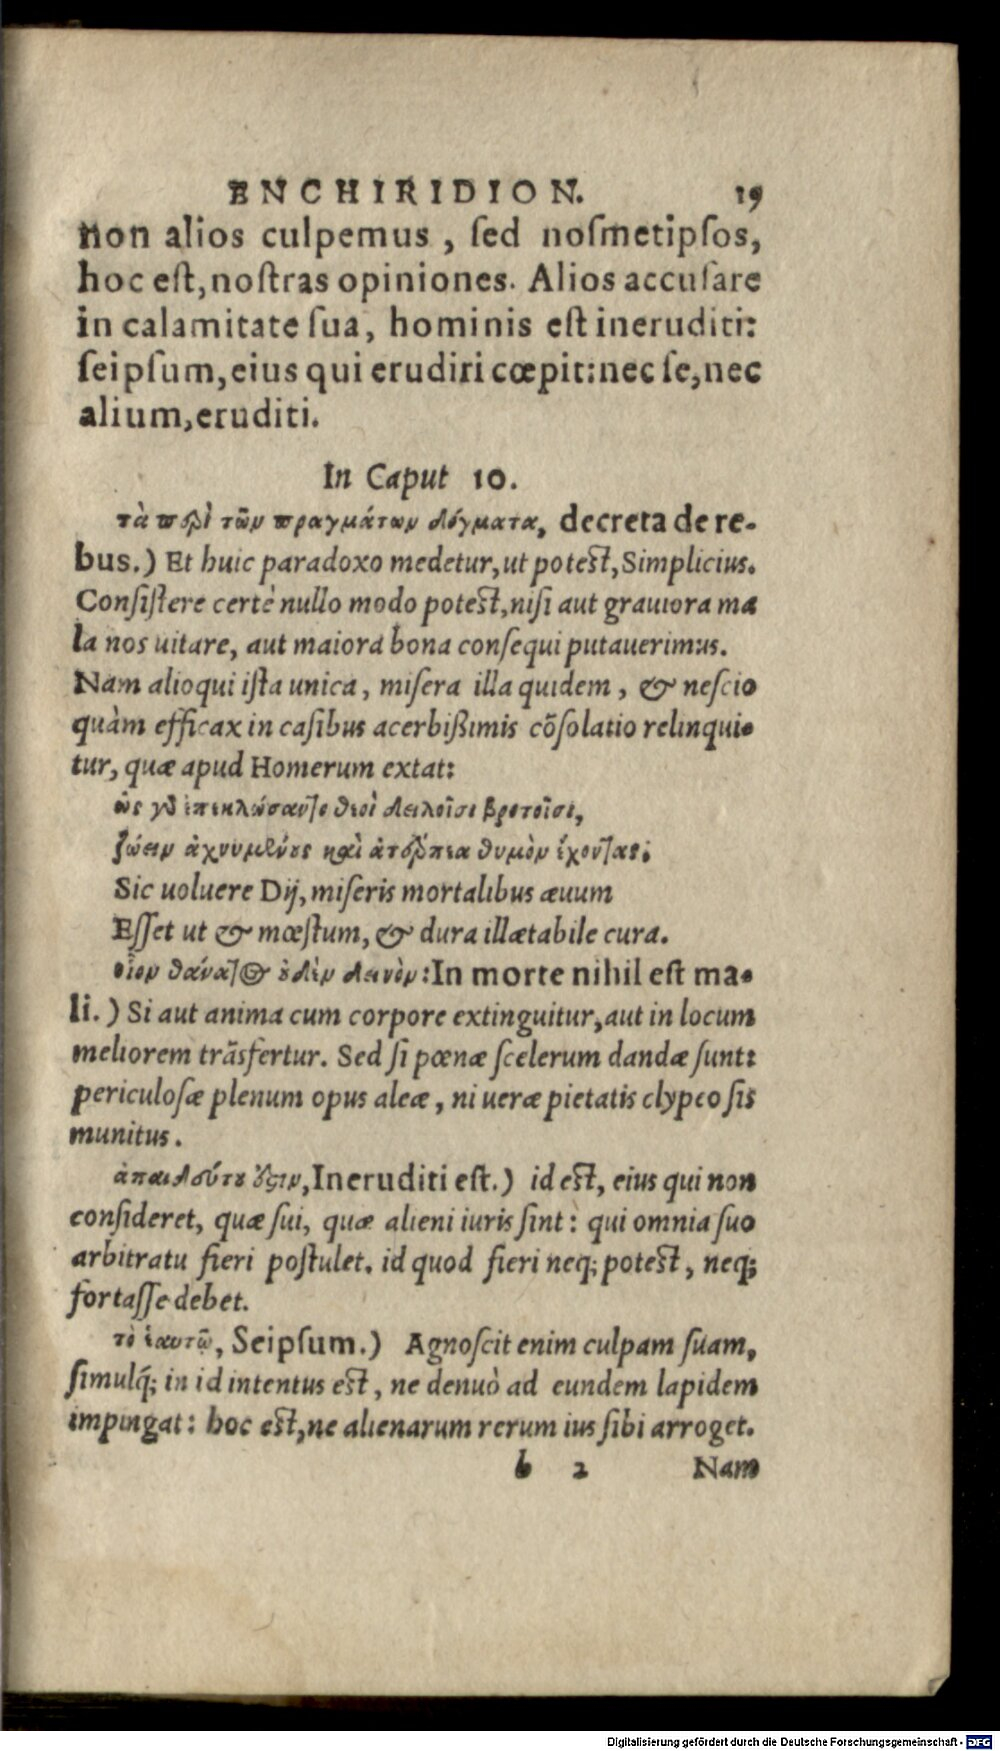 ENCHIRIDION. 19
non alios culpemus, ſed noſmetipſos,
hoc eſt, noſtras opiniones. Alios accuſare
in calamitate ſua, hominis eſt ineruditi:
ſeipſum, eius qui erudiri cœpit: nec ſe, nec
alium, eruditi.
In Caput 10.
τὰ περὶ τῶν πραγμάτων δόγματα, decreta de re-
bus.) Et huic paradoxo medetur, ut poteſt, Simplicius.
Conſiſtere certè nullo modo poteſt, niſi aut grauiora ma
la nos uitare, aut maiora bona conſequi putauerimus.
Nam alioqui iſta unica, miſera illa quidem, & neſcio
quàm efficax in caſibus acerbißimis cõſolatio relinqui-
tur, quæ apud Homerum extat:
ὣς γὰρ ἐπικλώσαντο θεοὶ δειλοῖσι βροτοῖσι,
ζώειν ἀχνυμένους καὶ ἀτερπέα θυμὸν ἔχοντας.
Sic uoluere Dij, miſeris mortalibus æuum
Eſſet ut & mœſtum, & dura illætabile cura.
οἷον θάνατος οὐδὲν δεινὸν: In morte nihil eſt ma-
li.) Si aut anima cum corpore extinguitur, aut in locum
meliorem trãsfertur. Sed ſi pœnæ ſcelerum dandæ ſunt:
periculoſæ plenum opus aleæ, ni ueræ pietatis clypeo ſis
munitus.
ἀπαιδεύτου ἔστιν, Ineruditi eſt.) id eſt, eius qui non
conſideret, quæ ſui, quæ alieni iuris ſint: qui omnia ſuo
arbitratu fieri poſtulet. id quod fieri neq; poteſt, neq;
fortaſſe debet.
τὸ ἑαυτῷ, Seipſum.) Agnoſcit enim culpam ſuam,
ſimulq́; in id intentus eſt, ne denuò ad eundem lapidem
impingat: hoc eſt, ne alienarum rerum ius ſibi arroget.
b 2 Nam
Digitalisierung gefördert durch die Deutsche Forschungsgemeinschaft - DFG